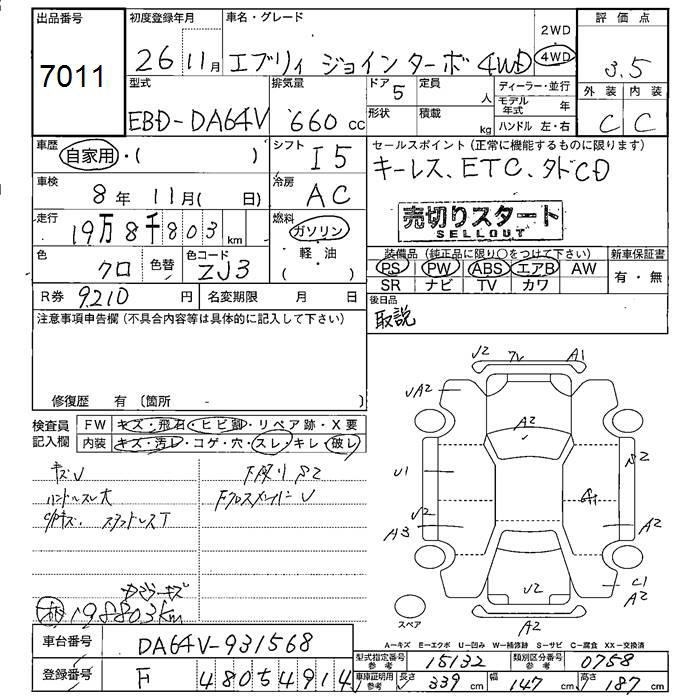 出品番号
7011
初度登録年月
26 11月
車名・グレード
エブリィ ジョインターボ 4WD
2WD
4WD
評価点
3.5
外装 内装
C C
型式
EBD-DA64V
排気量
660 cc
ドア 5
形状
定員 人
積載 kg
ディーラー・並行
モデル年式 年
ハンドル 左・右
車歴
自家用・( )
シフト
I5
車検
8年 11月( 日)
冷房
AC
走行
19万8千803 km
燃料
ガソリン
軽・油
( )
色
クロ
色替
色コード
ZJ3
R券 9210 円
名変期限 月 日
セールスポイント(正常に機能するものに限ります)
キーレス、ETC、タドCD
売切りスタート
SELLOUT
装備品(純正品に限り○をつけて下さい)
PS PW ABS エアB AW
SR ナビ TV カワ
新車保証書
有・無
後日品
取説
注意事項申告欄(不具合内容等は具体的に記入して下さい)
修復歴 有(箇所 )
検査員記入欄
FW キズ・飛石・ヒビ割・リペア跡・X要
内装 キズ・汚レ・コゲ・穴・スレ・キレ・破レ
キズV
ハンドルスレ大
198803km
車台番号
DA64V-931568
登録番号
F 48054914
J2 A1
A2
U1
A3
A2
C1
A2
スペア
A2
A-キズ E-エクボ U-凹み W-補修跡 S-サビ C-腐食 XX-交換済
型式指定番号 参考
15132
類別区分番号 参考
0758
車庫証明用 参考
長さ 339 cm
幅 147 cm
高さ 187 cm